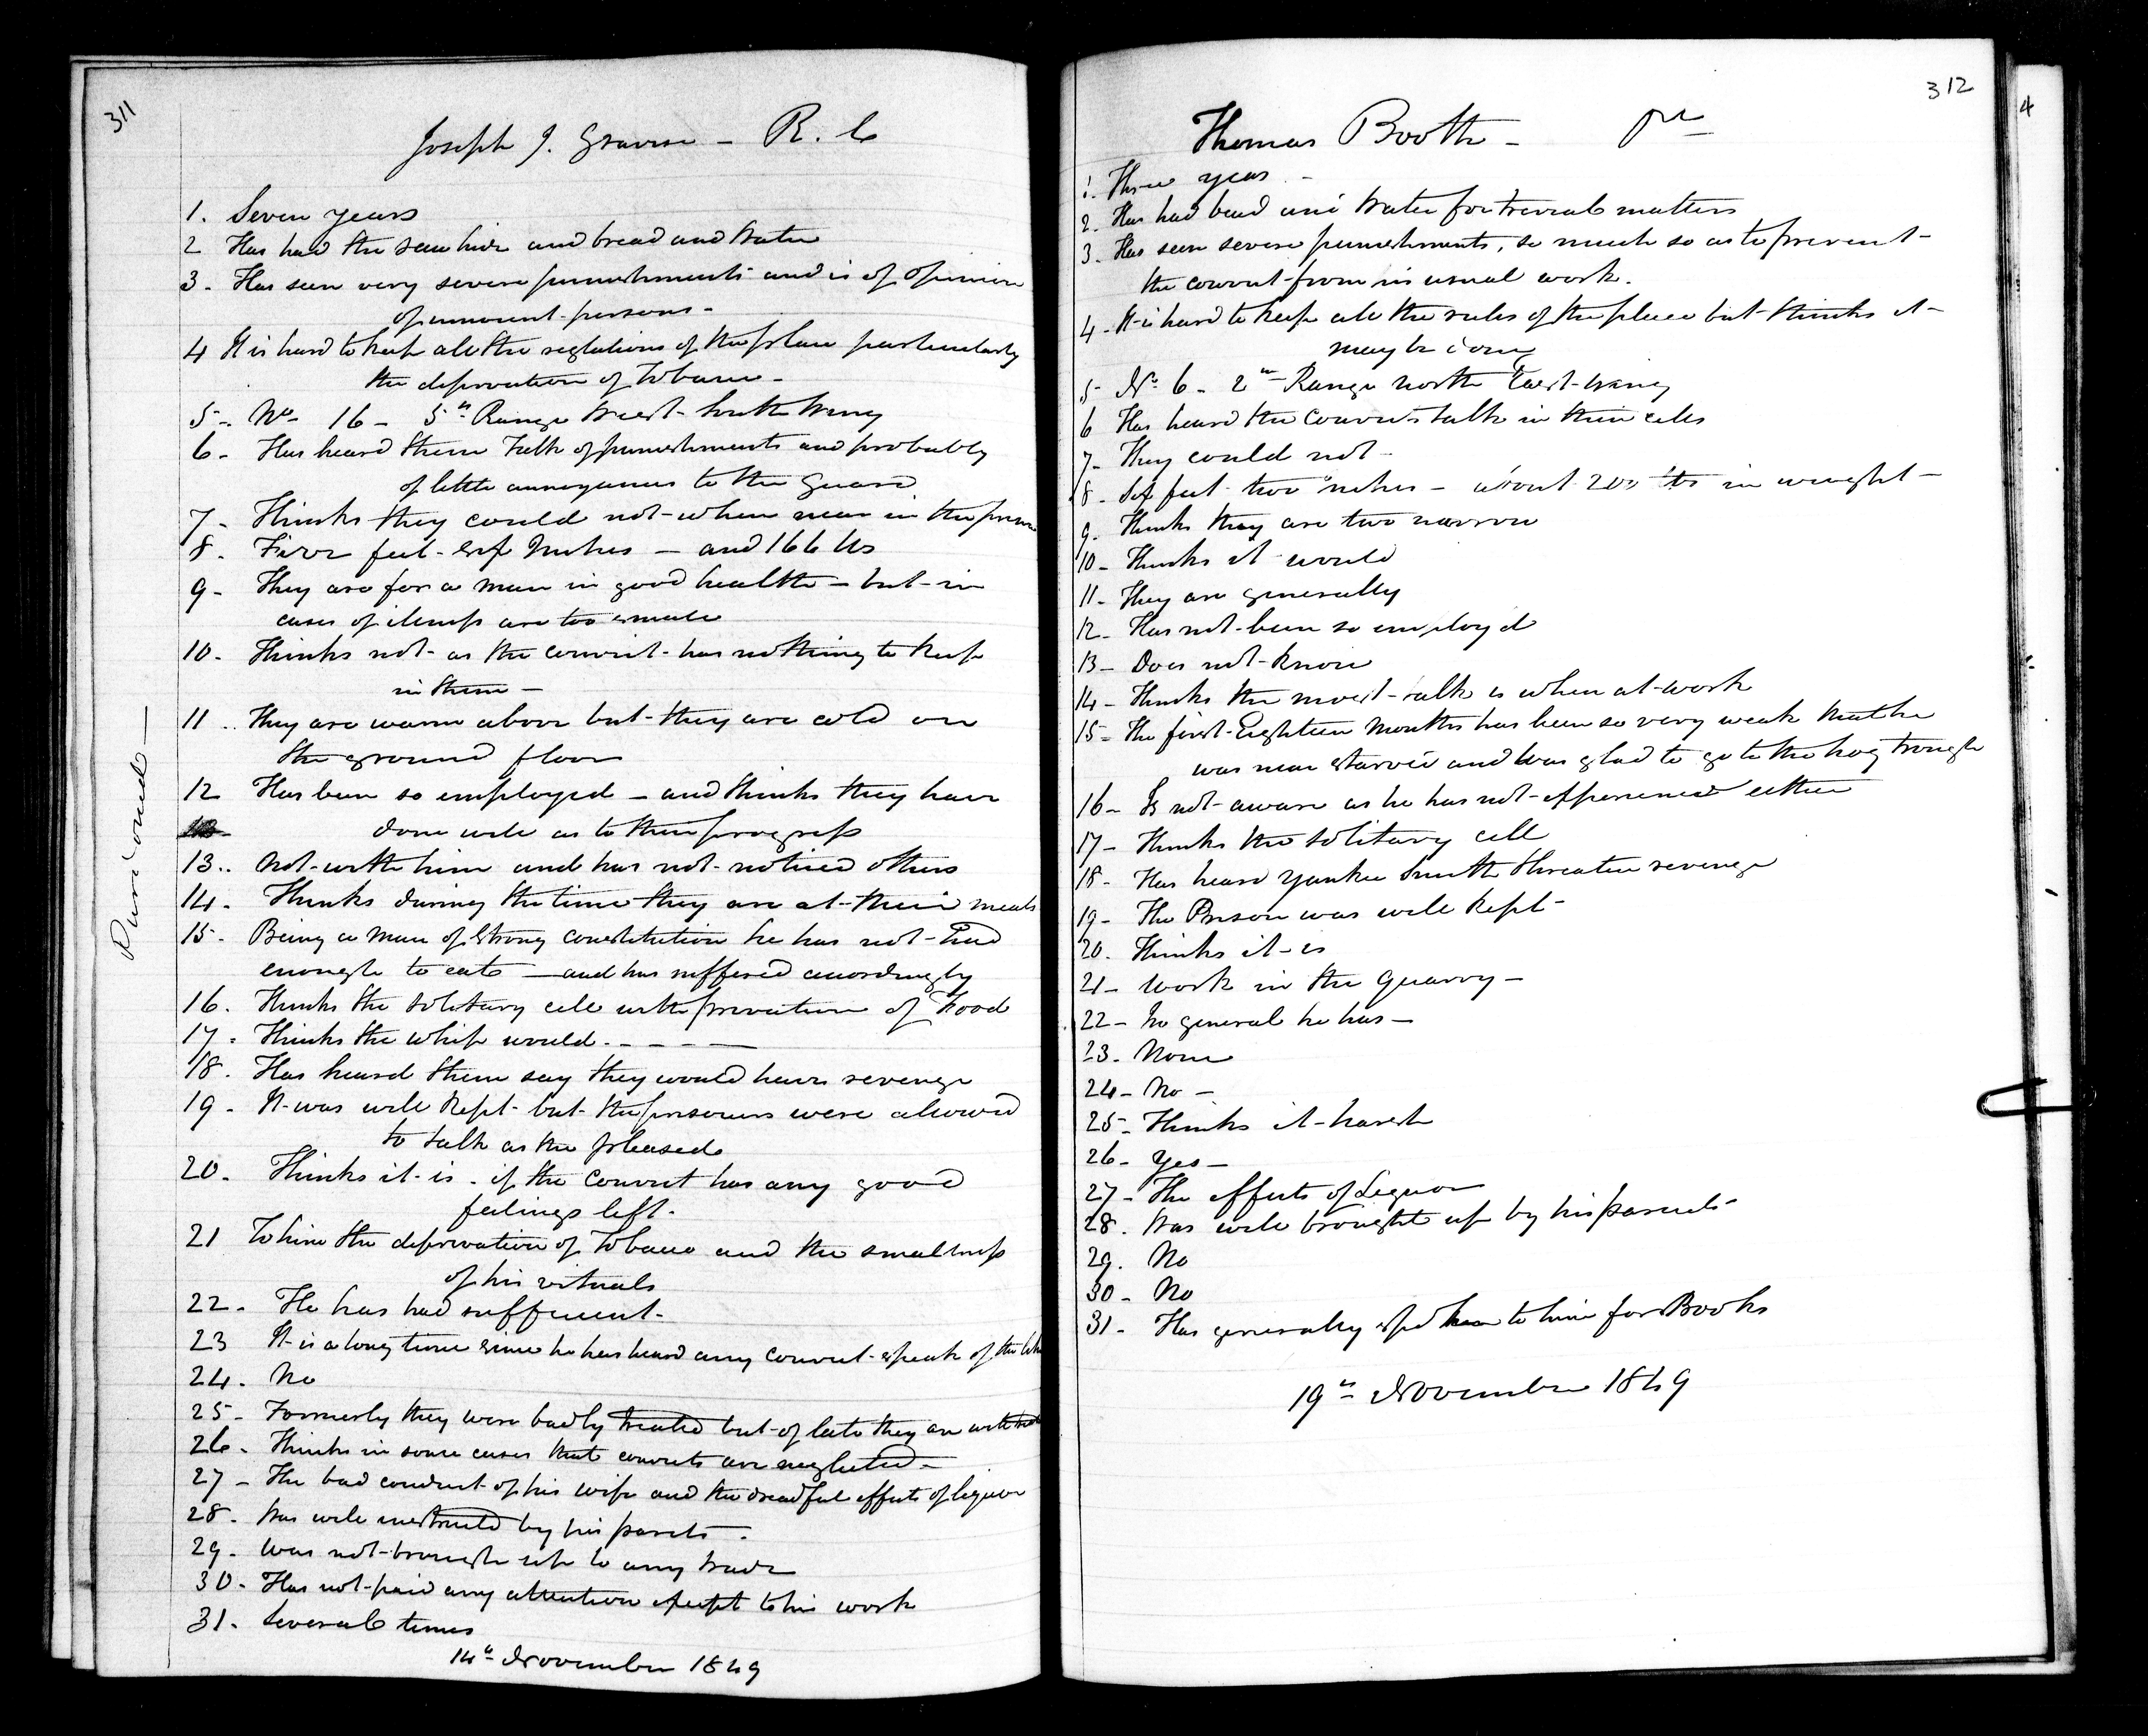 311
Joseph J. Graverse - R. C
1. Seven years
2 Has had the raw hide and bread and Water
3 - Has seen very severe punishments and is of opinion
of innocent persons -
4 It is hard to keep all the reglations of the place particularly
the deprivation of tobacco -
5 - No - 16 - 5th Range West - South Wing
6 - Has heard them talk of punishments and probably
of little annoyances to the Guard
7 - Thinks they could not when near in the
8 - Five feet - six Inches - and 166 lbs
9 - They are for a man in good health - but in
cases of illness are too small
10 - Thinks not - as the convict has nothing to keep
in them -
11 .. They are warm above but they are cold on
the ground floor
12 Has been so employed - and thinks they have
done well as to their progress
13 .. Not with him and has not noticed others
14 - Thinks during the time they are at their meals
15 - Being a man of Strong constitution he has not had
enough to eat - and has suffered accordingly
16 - Thinks the solitary cell with privation of Food
17 - Thinks the whip would - - - -
18 - Has heard them say they would have revenge
19 - It was well kept - but the prisoners were allowed
to talk as the pleased
20 - Thinks it is - if the Convict has any good
feelings left -
21 To him the deprivation of tobacco and the smallness
of his vituals
22 - He has had sufficient -
23 It is a long time since he has heard any convict speak of the
24 - No
25 - Formerly they were badly treated but of late they are well
26 - Thinks in some cases that convicts are neglected -
27 - The bad conduct of his wife and the dreadful effects of liquor
28 - Was well instructed by his parents -
29 - Was not brough up to any trade
30 - Has not paid any attention except to his work
31 - Several times
14th November 1849
Pardoned -
312
Thomas Booth -
1. Three years -
2. Has had bread and Water for trivial matters
3 - Has seen severe punishments, so much so as to prevent
the convict from his usual work.
4 - It is hard to keep all the rules of the place but thinks it
may be done
5 - No 6 - 2nd Range North East Wing
6 Has heard the convicts talk in their cells
7 - They could not -
8 - Six feet two inches - about 200 lbs in weight -
9 - Thinks they are two narrow
10 - Thinks it would
11 - They are generally
12 - Has not been so employd
13 - Does not know
14 - Thinks the most talk is when at work
15 - The first Eighteen Months has been so very weak that he
was near starved and was glad to go to the hog trough
16 - Is not aware as he has not experienced either
17 - Thinks the solitary cell
18 - Has heard Yankee Smith threaten revenge
19 - The Prison was well kept
20. Thinks it is
21 - Work in the Quarry -
22 - In general he has -
23 - None
24 - No -
25 - Thinks it harsh
26 - Yes -
27 - The effects of Liquor
28 - Was well brought up by his parents
29. No
30 - No
31 - Has generally to him for Books
19th November 1849
4